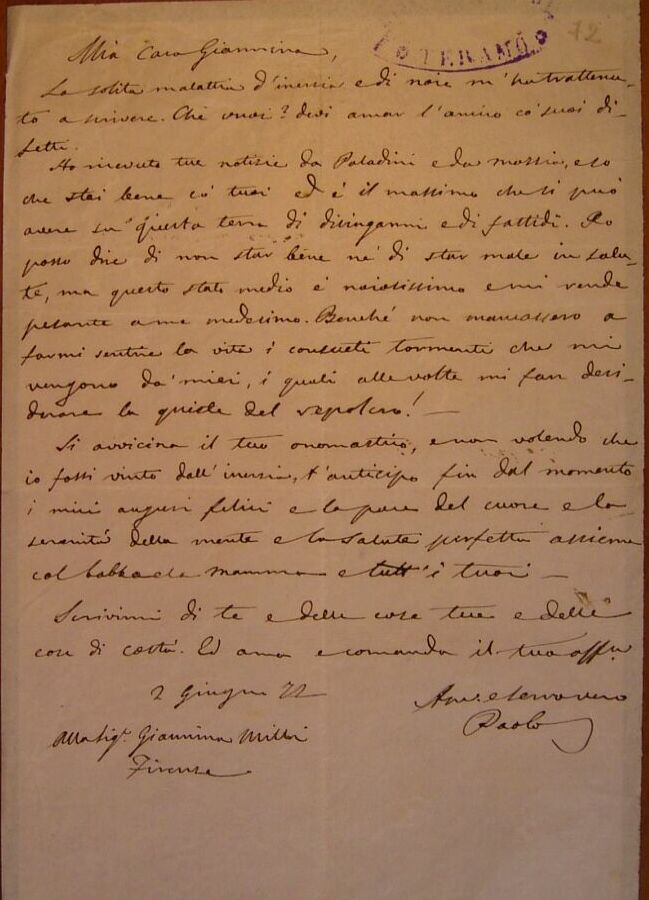 TERAMO
12
Mia Cara Giannina,
La solita malattia d'inerzia e di noie m'ha trattenu-
to a scrivere. Che vuoi? devi amar l'amico co' suoi di-
fetti.
Ho ricevuto tue notizie da Paladini e da , e so
che stai bene co' tuoi ed è il massimo che si può
avere su questa terra di disinganni e di fastidi. Io
posso dire di non star bene nè di star male in salu-
te, ma questo stato medio è noiosissimo e mi rende
pesante a me medesimo. Benché non mancassero a
farmi sentire la vita i consueti tormenti che mi
vengono da' miei, i quali alle volte mi fan desi-
derare la quiete del sepolcro! —
Si avvicina il tuo onomastico, e non volendo che
io fossi vinto dall'inerzia, t'anticipo fin dal momento
i miei auguri felici e la pace del cuore e la
serenità della mente e la salute perfetta assieme
col babbo e la mamma e tutt'i tuoi —
Scrivimi di te e delle cose tue e delle
cose di costà. Ed ama e comanda il tuo aff.
2 Giugno 72
Am. e servo vero
Paolo
Alla Sig.ª Giannina Milli
Firenze